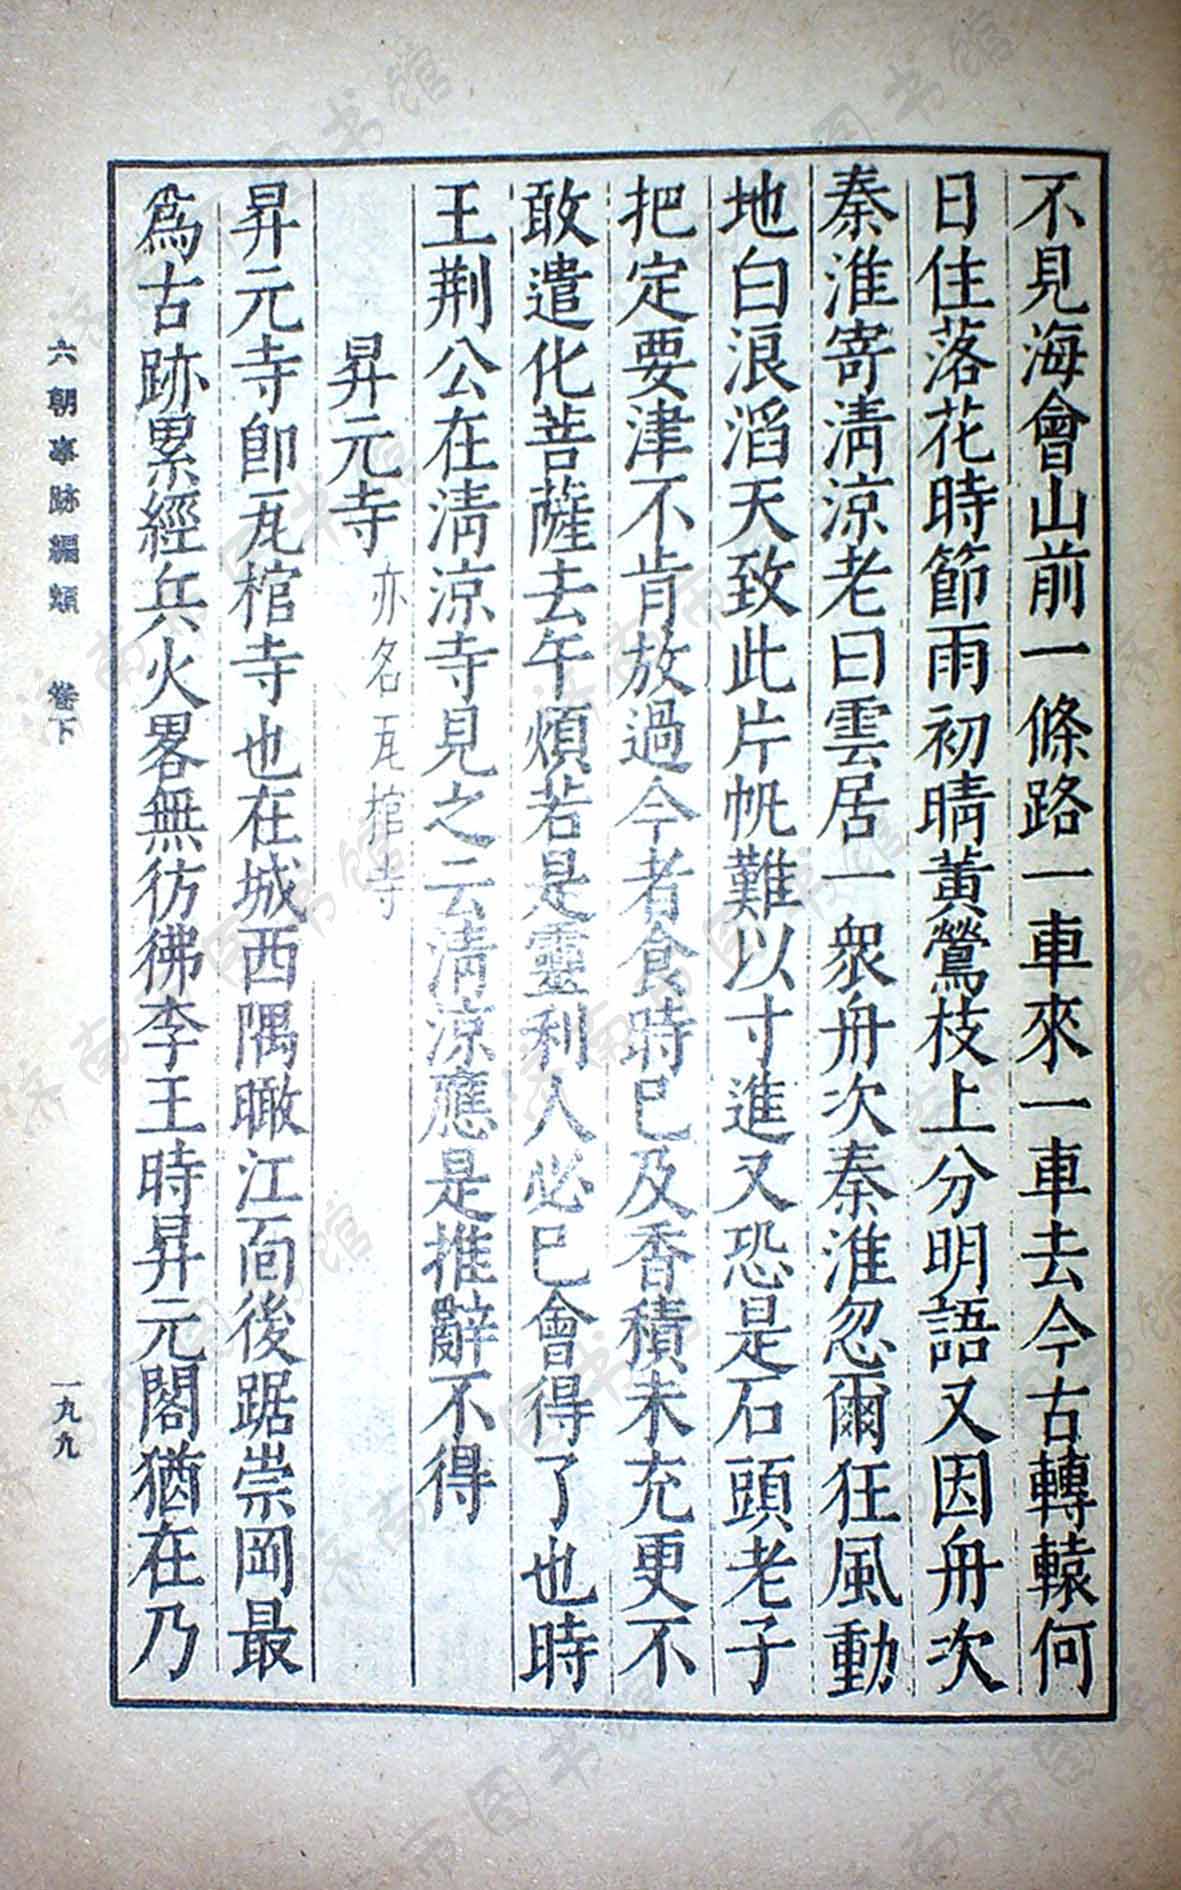 不見海會山前一條路一車來一車去今古轉轅何
日住落花時節雨初晴黃鶯枝上分明語又因舟次
秦淮寄清涼老曰雲居一衆舟次秦淮忽爾狂風動
地白浪滔天致此片帆難以寸進又恐是石頭老子
把定要津不肯放過今者食時已及香積未充更不
敢遣化菩薩去午煩若是靈利人必已會得了也時
王荆公在清涼寺見之云清涼應是推辭不得
昇元寺 亦名瓦棺寺
昇元寺卽瓦棺寺也在城西隅瞰江面後踞崇岡最
爲古跡累經兵火畧無彷彿李王時昇元閣猶在乃
六朝事跡編類 卷下
一九九
济南市图书馆